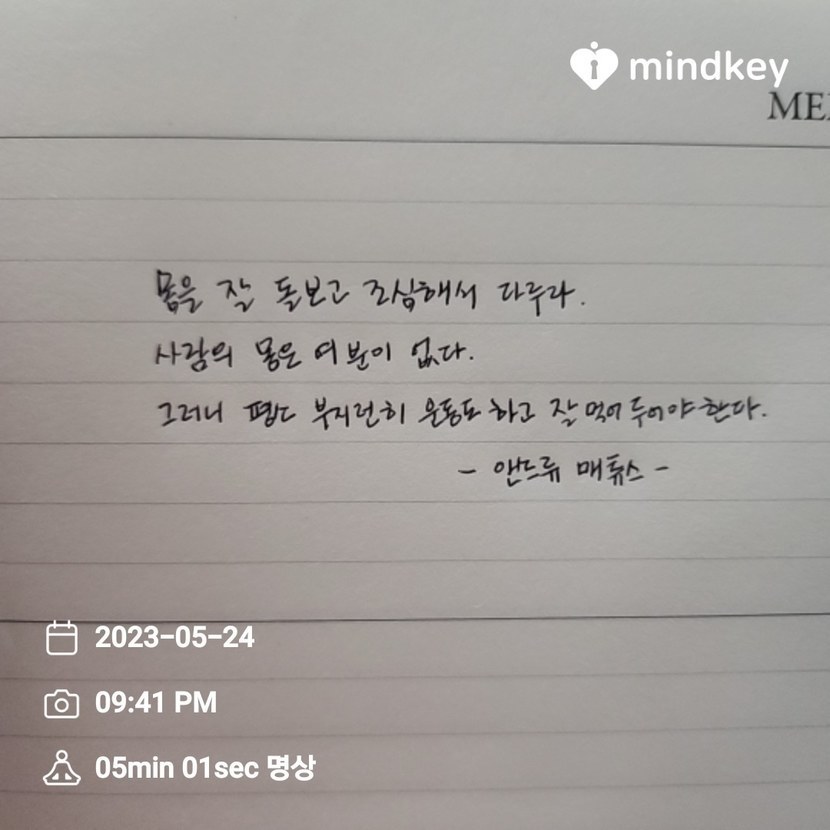 mindkey
몸을 잘 돌보고 조심해서 다루라.
사람의 몸은 여분이 없다.
그러니 부지런히 운동도 하고 잘 먹어 두어야 한다.
- 앤드류 매튜스 -
2023-05-24
09:41 PM
05min 01sec 명상